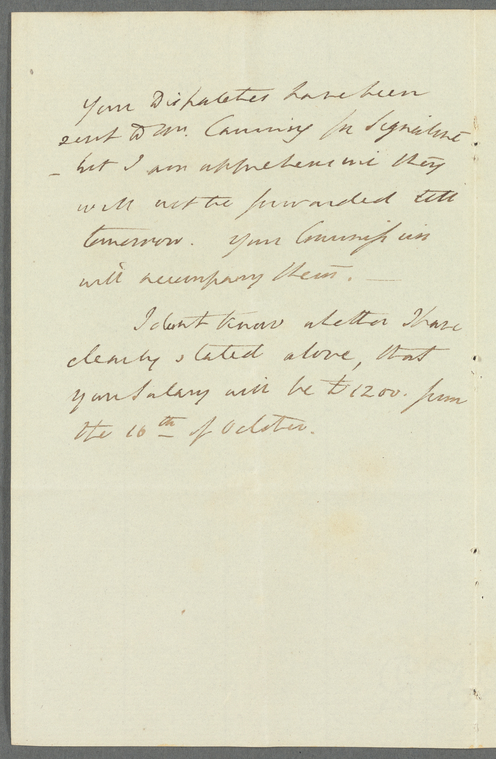 Your Dispatches have been
sent to Mr. Canning for Signature
- but I am apprehensive they
will not be forwarded till
tomorrow. Your Commission
will accompany them. —
I don't know whether I have
clearly stated above, that
your Salary will be £1200. from
the 16th of October.